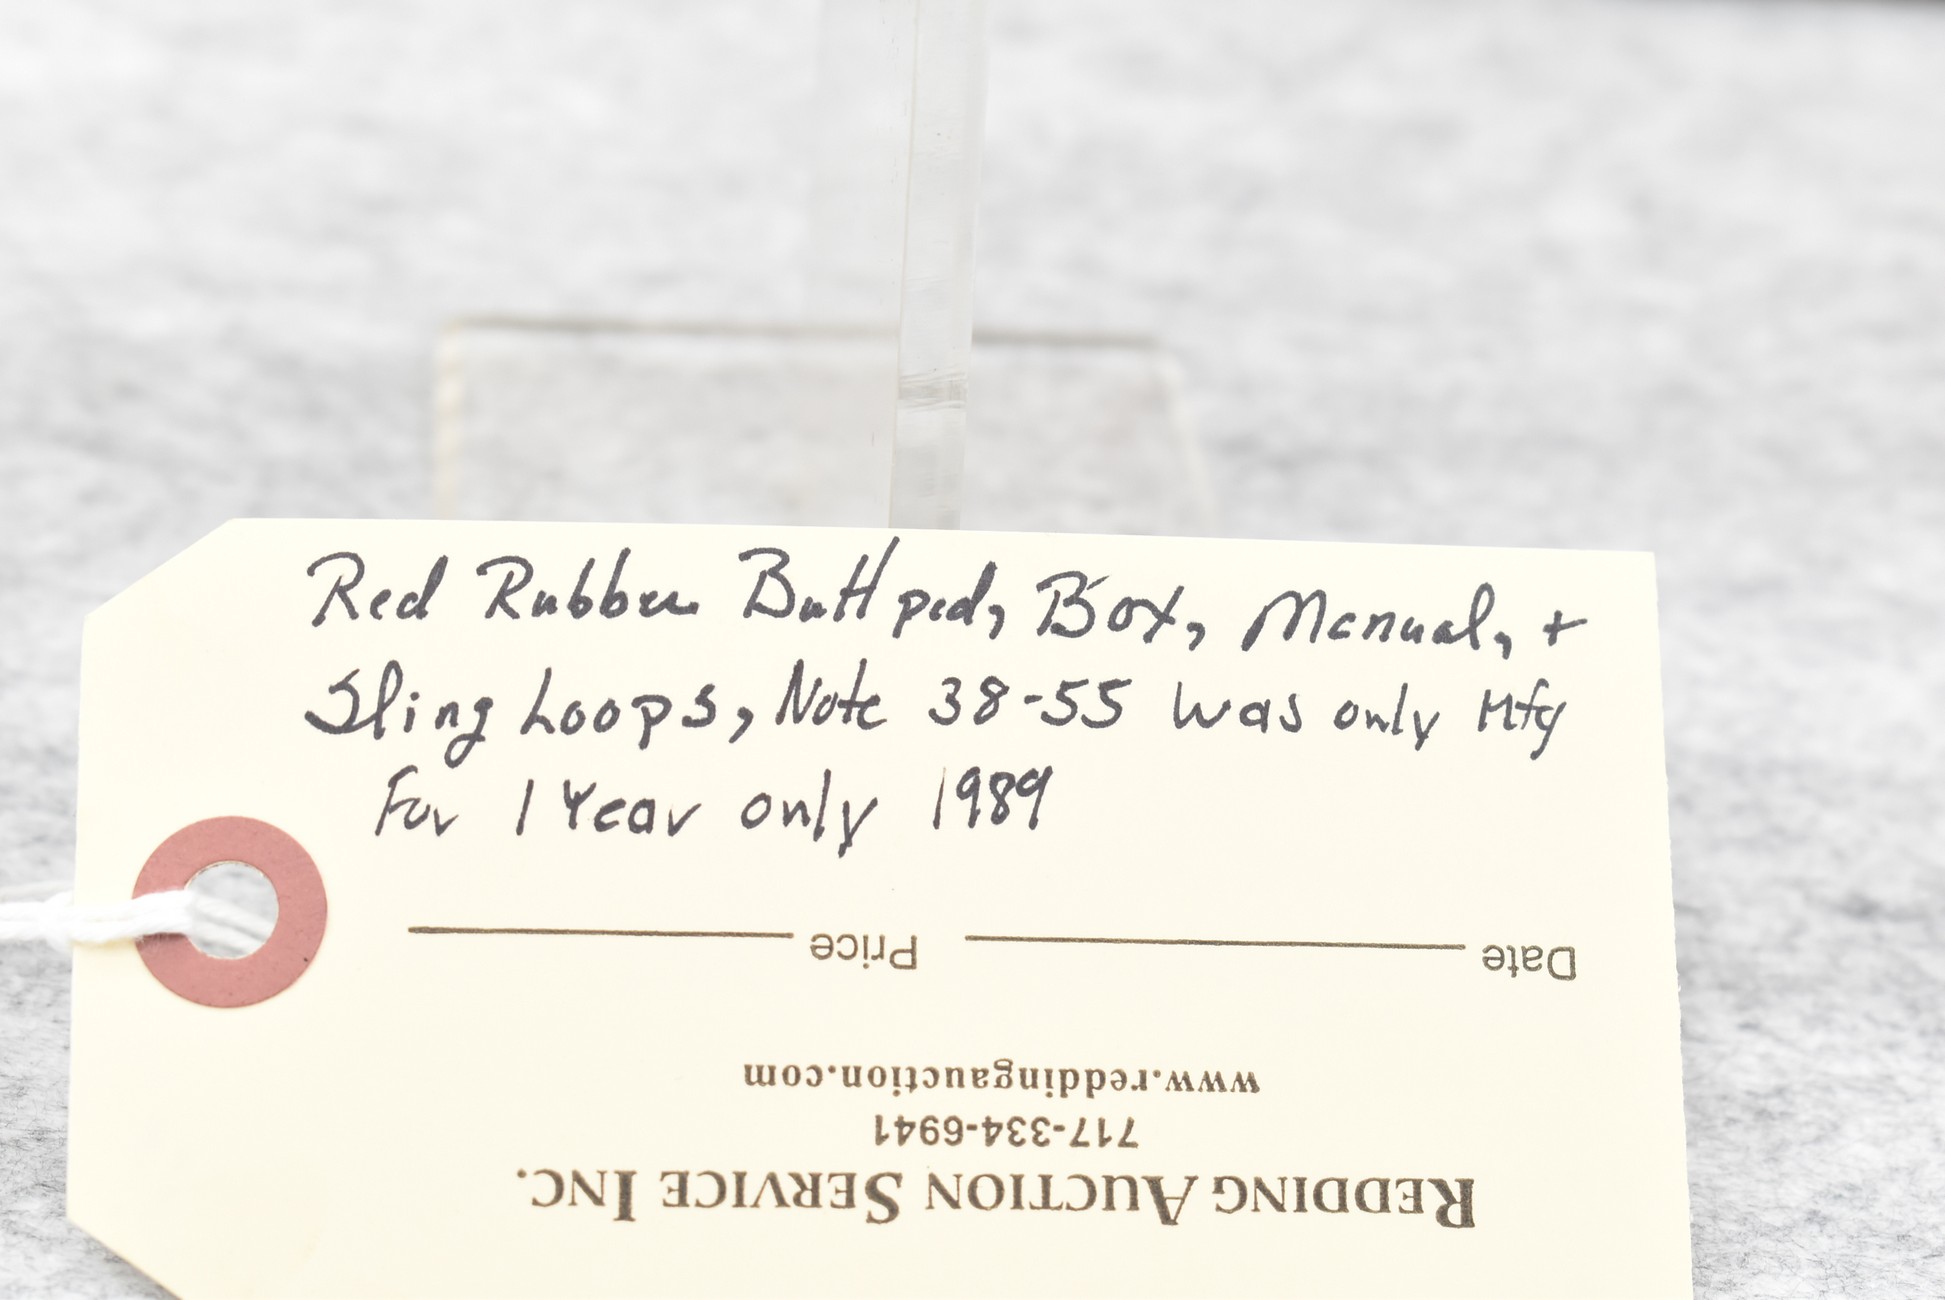 Red Rubber Butt pad, Box, Manual, +
Sling Loops, Note 38-55 was only Mfg
For 1 Year only 1989
Date Price
www.reddingauction.com
717-334-6941
REDDING AUCTION SERVICE INC.